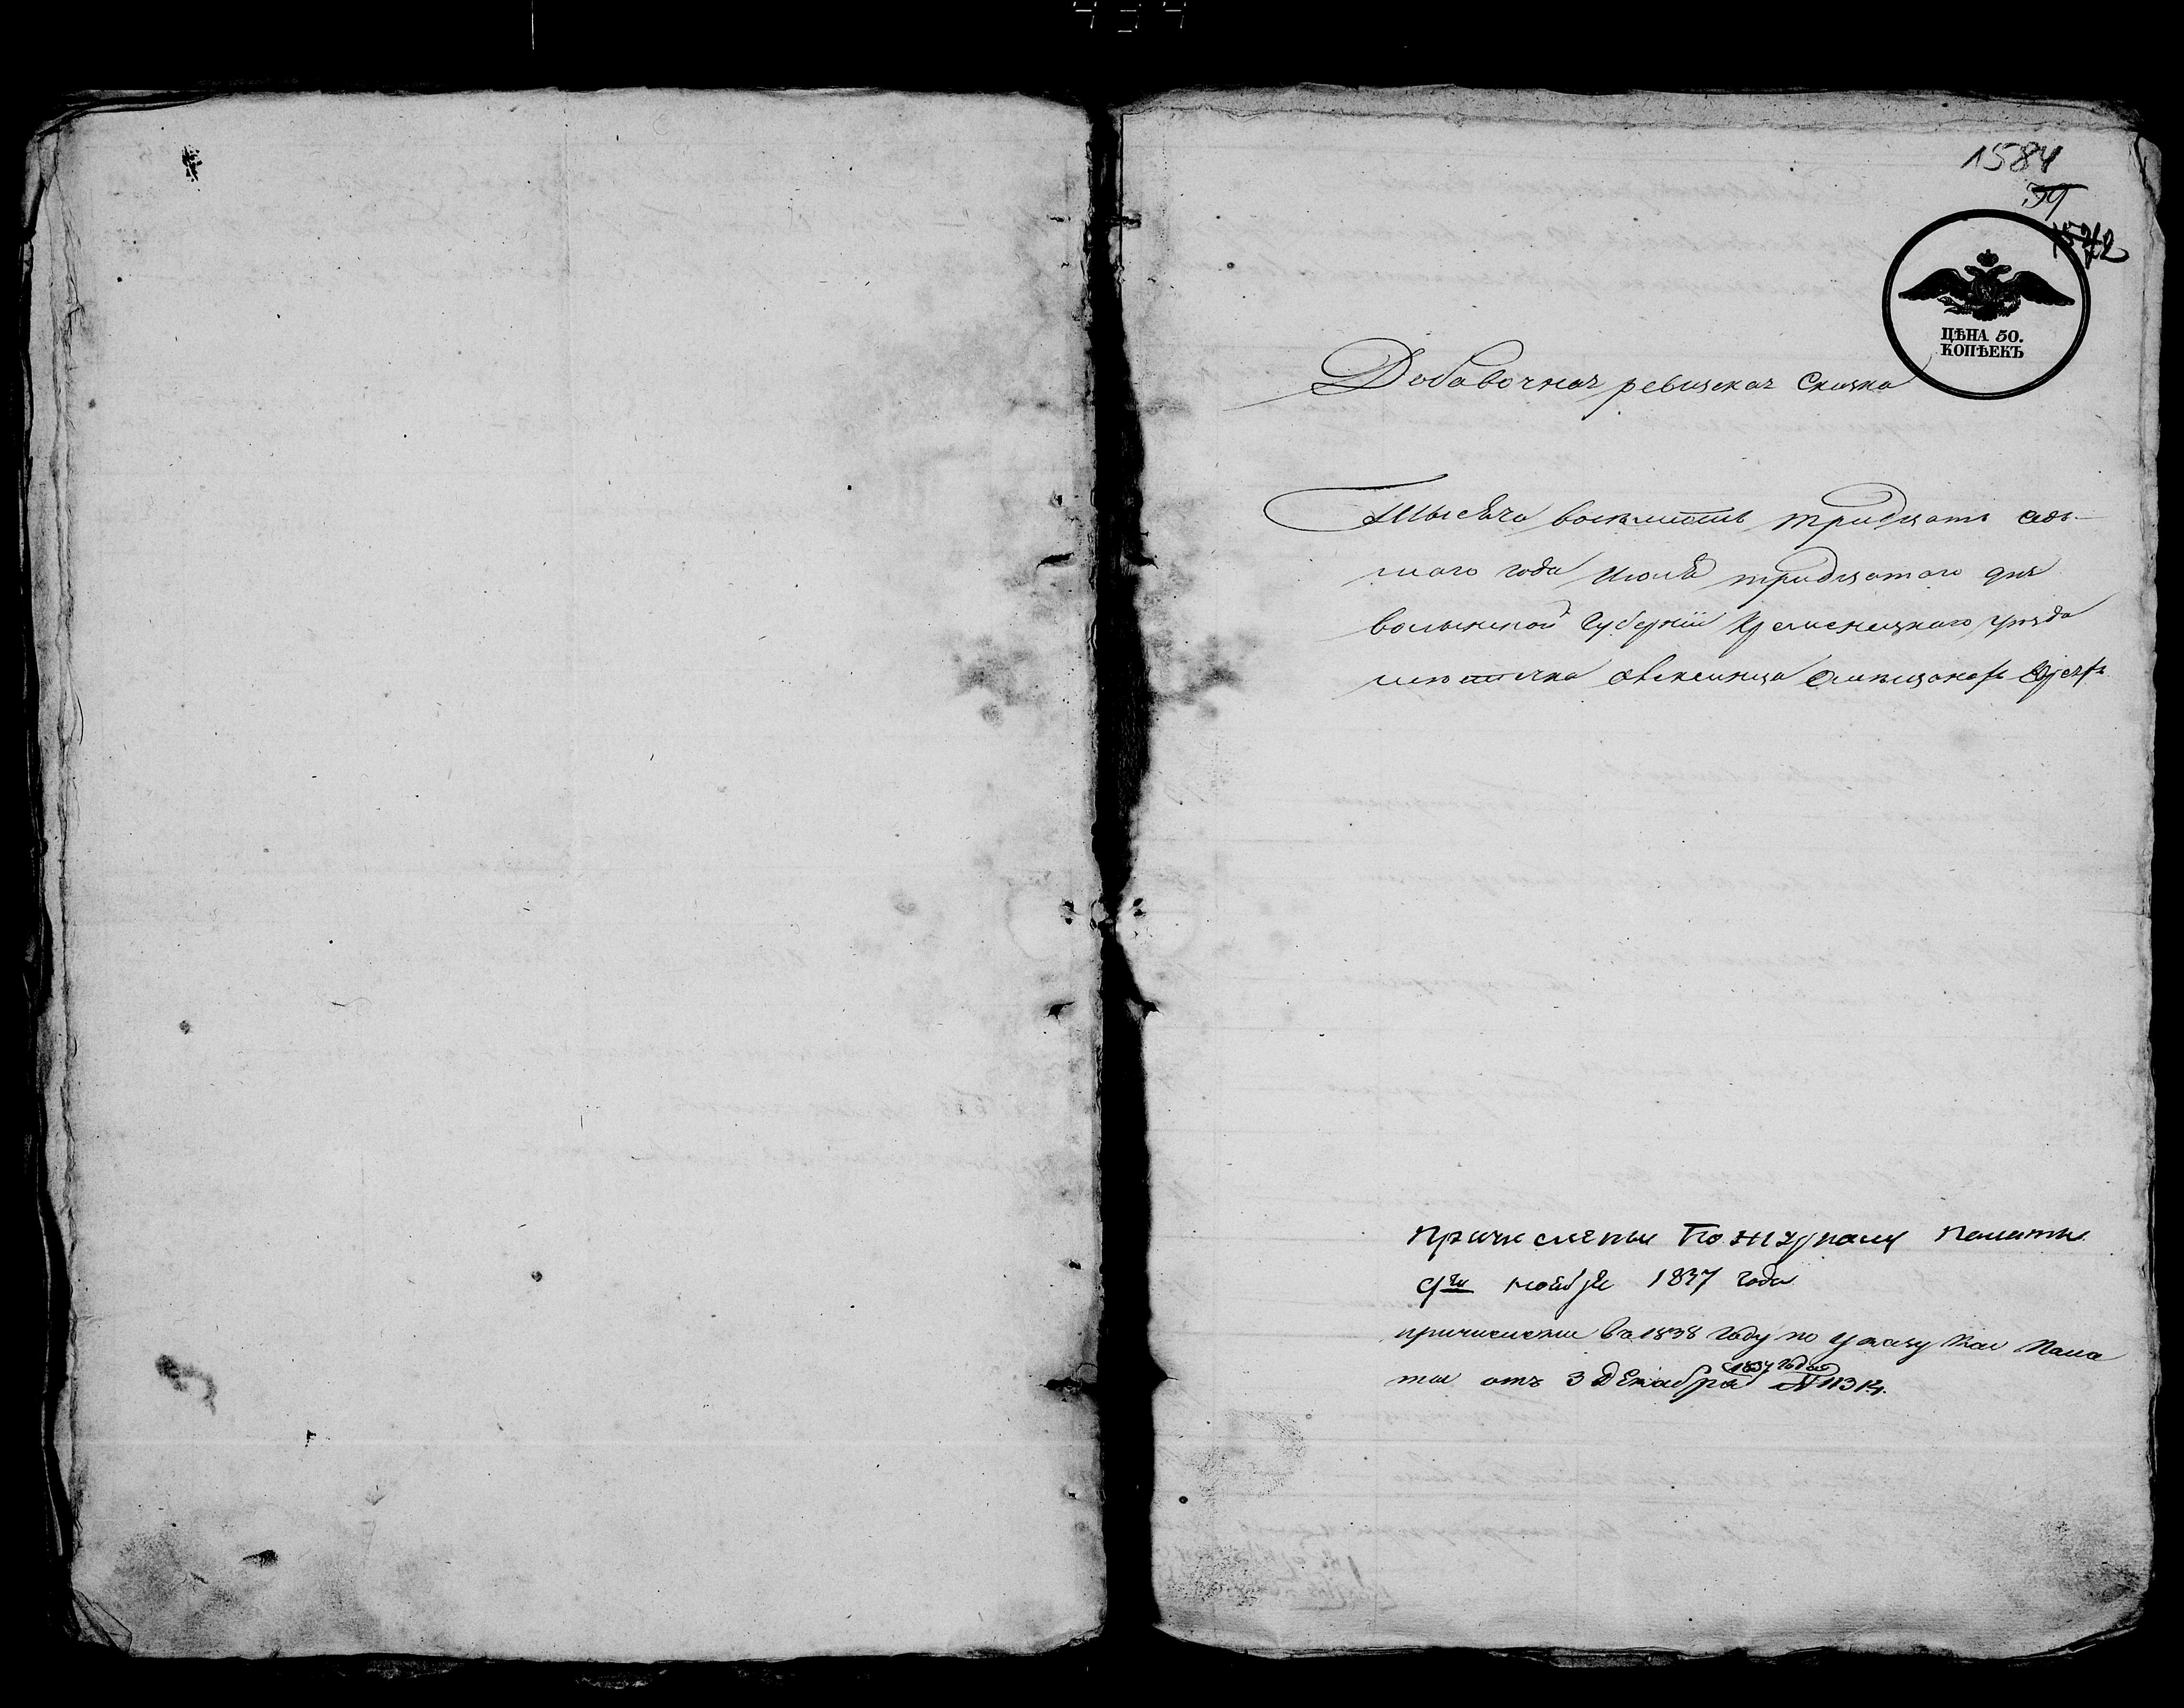 1584
39
1572
ЦѢНА 50.
КОПѢЕКЪ
Добавочная ревизская Сказка
Тысяча восемьсотъ тридцать седь-
маго года Июля тридцатаго дня
волынской Губерніи Кременецкаго уѣзда
мѣстечка
Причислены По журналу Палаты
9го ноября 1837 года
причислены въ 1838 году по указу Каз Пала
ты отъ 3 декабря 1837 года №